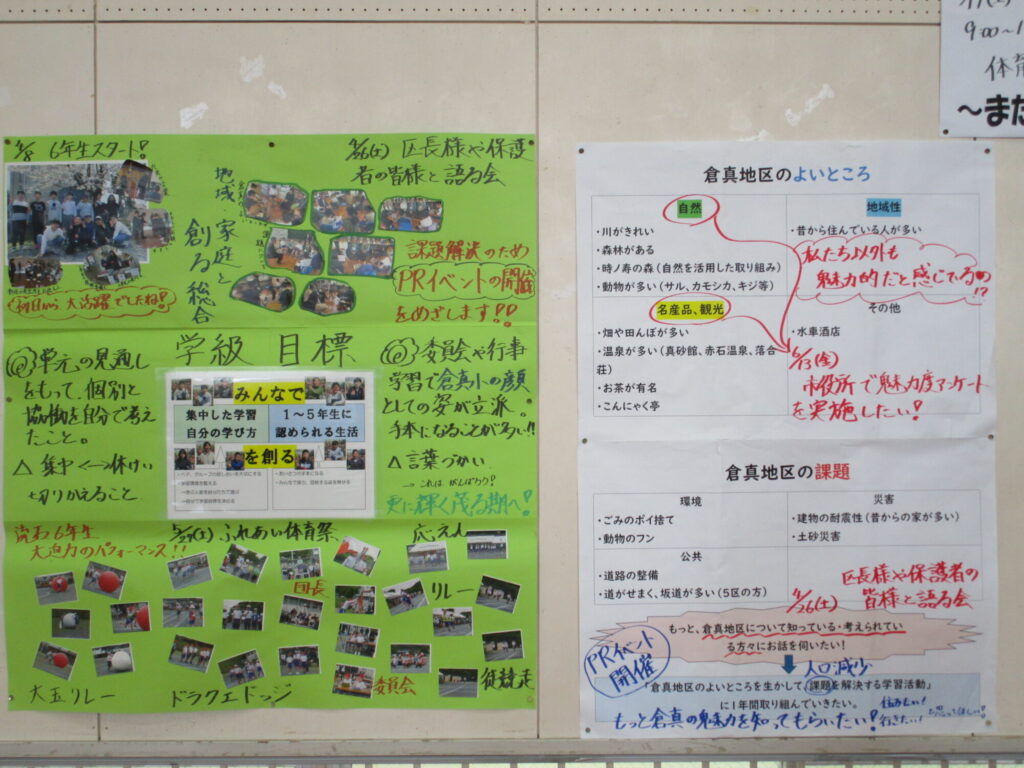 4/8 6年生スタート!
4/26(土) 区長様や保護
者の皆様と語る会
地域 家庭と
創る総合
課題解決のため
PRイベントの開催
をめざします!!
初日から大活躍でしたね!
学級目標
◎単元の見通し
をもって、個別と
協働を自分で考え
たこと。
△ 集中←→休けい
切りかえること
みんなで
集中した学習
自分の学び方
1~5年生に
認められる生活
を創る
◎委員会や行事
学習で倉真小の顔
としての姿が立派。
手本になることが多い!!
△言葉づかい
→これはがんばろう?
更に輝く茂る期へ!
流石6年生
大迫力のパフォーマンス!!
ふれあい体育祭
応えん
団長
リレー
大玉リレー
ドラクエドッジ
委員会
徒競走
倉真地区のよいところ
自然
・川がきれい
・森林がある
・時ノ寿の森(自然を活用した取り組み)
・動物が多い(サル、カモシカ、キジ等)
地域性
・昔から住んでいる人が多い
私たち以外も
魅力的だと感じている!?
名産品、観光
・畑や田んぼが多い
・温泉が多い(真砂館、赤石温泉、落合
荘)
・お茶が有名
・こんにゃく亭
その他
・水車酒店
6/13(金)
市役所で魅力度アンケート
を実施したい!
倉真地区の課題
環境
・ごみのポイ捨て
・動物のフン
災害
・建物の耐震性(昔からの家が多い)
・土砂災害
公共
・道路の整備
・道がせまく、坂道が多い(5区の方)
区長様や保護者の
4/26(土) 皆様と語る会
もっと、倉真地区について知っている・考えられてい
る方々にお話を伺いたい!
PRイベント
開催
人口減少
「倉真地区のよいところを生かして、課題を解決する学習活動」
に1年間取り組んでいきたい。
住みたい!
行きたい!
もっと倉真の魅力を知ってもらいたい!
9:00~1
体育
~また